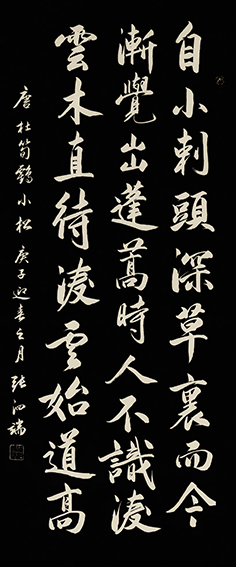 自小刺頭深草裏而今
漸覺出蓬蒿時人不識凌
雲木直待凌雲始道高
唐杜荀鶴小松庚子迎春之月張泗端